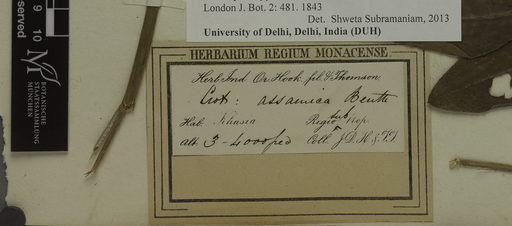 London J. Bot. 2: 481. 1843
Det. Shweta Subramaniam, 2013
University of Delhi, Delhi, India (DUH)
served
9 10
BOTANISCHE
STAATSSAMMLUNG
MÜNCHEN
HERBARIUM REGIUM MONACENSE
Herb. Ind. Or. Hook. fil. & Thomson.
Crot: assamica Benth
Hab. Khasia Regio sub trop.
Alt. 3-4000 ped Coll. J. D. H. & T. T.